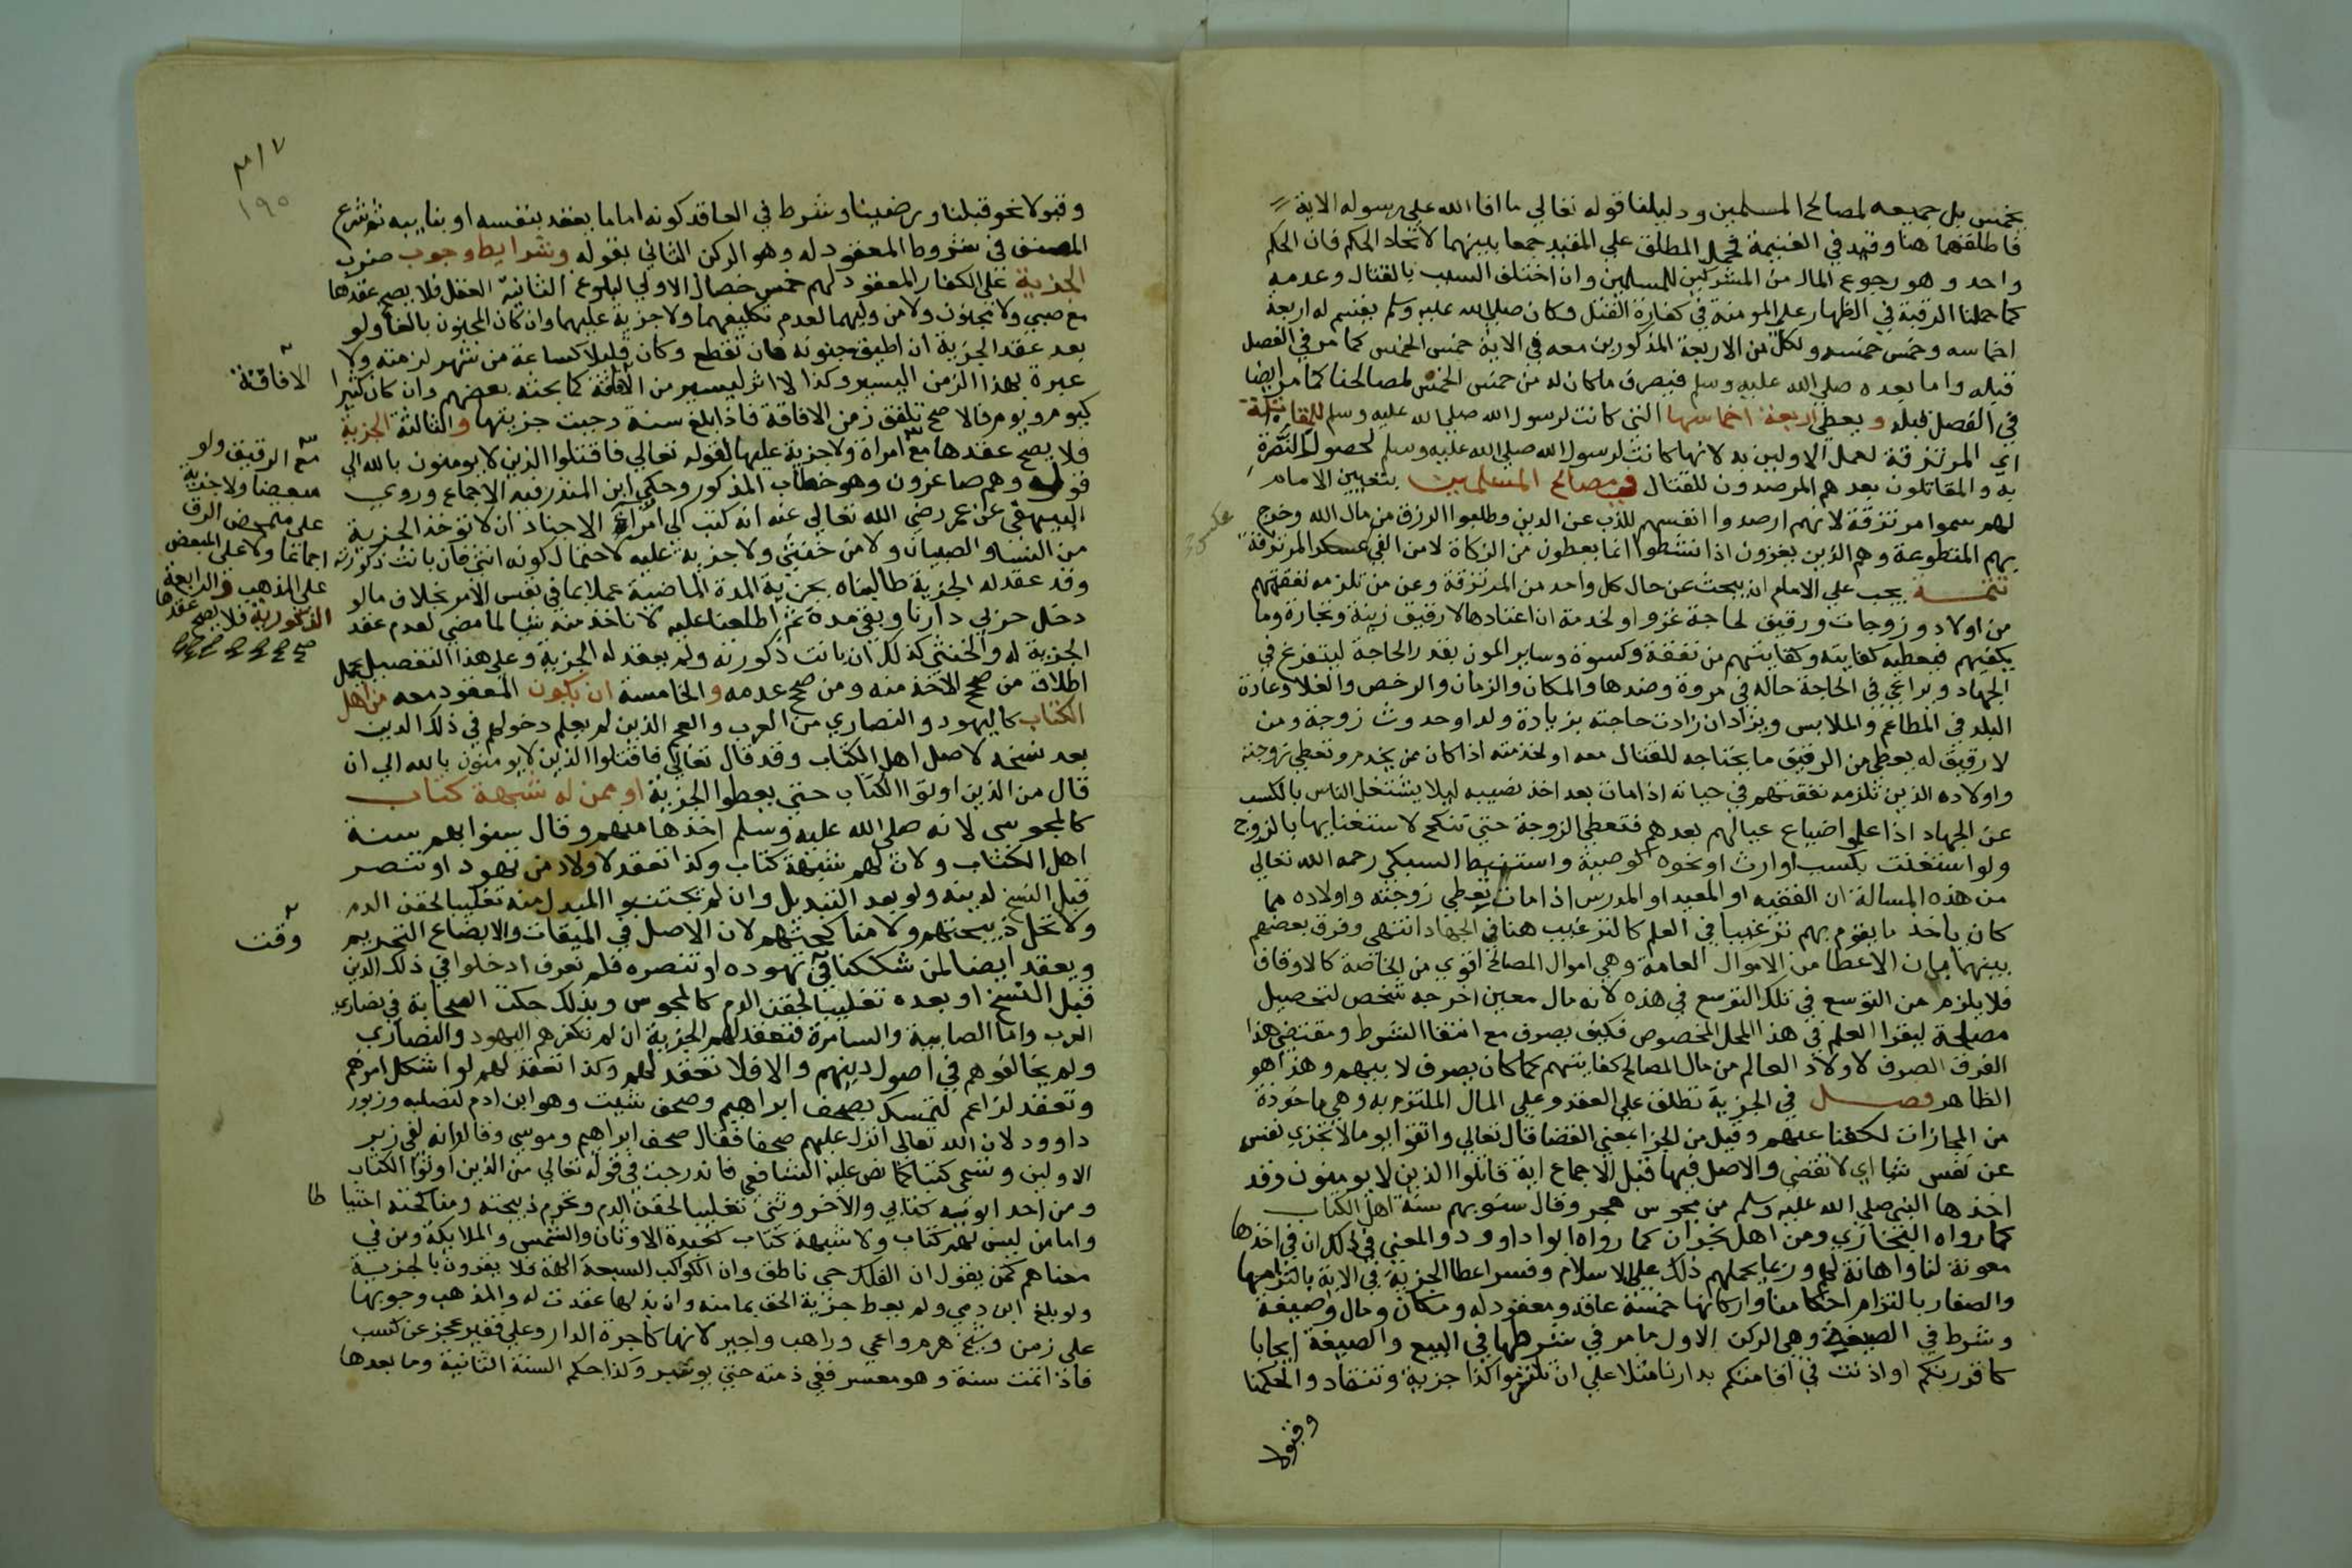 يخمس بل جميعه لمصالح المسلمين ودليلنا قوله تعالي ما افا الله علي رسوله الاية
فاطلقها هنا وقيد في الغنيمة فحمل المطلق علي المقيد جمعا بينهما لاتحاد الحكم فان الحكم
واحد وهو رجوع المال من المشركين للمسلمين وان اختلف السبب بالقتال وعدمه
كما حملنا الرقبة في الظهار علي المومنة في كفارة القتل وكان صلي الله عليه وسلم يقسم له اربعة
اخماسه وخمس خمسه ولكل من الاربعة المذكورين معه في الاية خمس الخمس كما مر في الفصل
قبله واما بعده صلي الله عليه وسلم فيصرف ما كان له من خمس الخمس لمصالحنا كما مر ايضا
في الفصل قبله ويعطي اربعة اخماسها التي كانت لرسول الله صلي الله عليه وسلم للمقاتلة
اي المرتزقة لعمل الاولين به لانها كانت لرسول الله صلي الله عليه وسلم لحصول النصرة
به والمقاتلون بعدهم المرصدون للقتال في مصالح المسلمين بتعيين الامام
لهم سموا مرتزقة لانهم ارصدوا انفسهم للذب عن الدين وطلبوا الرزق من مال الله وخرج
بهم المتطوعة وهم الذين يغزون اذا نشطوا انما يعطون من الزكاة لا من الفي عكس المرتزقة
تتمة يجب علي الامام ان يبحث عن حال كل واحد من المرتزقة وعن من تلزمه نفقتهم
من اولاد وزوجات ورقيق لحاجة غزو او لخدمة ان اعتادها لا رقيق زينة وتجارة وما
يكفيهم فيعطيه كفايته وكفايتهم من نفقة وكسوة وساير المون بقدر الحاجة ليتفرغ في
الجهاد ويراعي في الحاجة حاله في مروة وضدها والمكان والزمان والرخص والغلا وعادة
البلد في المطاعم والملابس ويزاد ان زادت حاجته بزيادة ولد او حدوث زوجة ومن
لا رقيق له يعطي من الرقيق ما يحتاجه للقتال معه او لخدمته اذا كان ممن يخدم وتعطي زوجته
واولاده الذين تلزمه نفقتهم في حياته اذا مات بعد اخذ نصيبه ليلا يشتغل الناس بالكسب
عن الجهاد اذا علموا ضياع عيالهم بعدهم فتعطي الزوجة حتي تنكح لاستغنايها بالزوج
ولو استغنت بكسب او ارث او نحوه كوصية واستنبط السبكي رحمه الله تعالي
من هذه المسالة ان الفقيه او المعيد او المدرس اذا مات تعطي زوجته واولاده مما
كان ياخذ ما يقوم بهم ترغيبا في العلم كالترغيب هنا في الجهاد انتهي وفرق بعضهم
بينهما بان الاعطا من الاموال العامة وهي اموال المصالح اقوي من الخاصة كالاوقاف
فلا يلزم من التوسع في تلك التوسع في هذه لانه مال معين اخرجه شخص لتحصيل
مصلحة ليقرا العلم في هذا المحل المخصوص فكيف يصرف مع انتفا الشرط ومقتضي هذا
الفرق الصرف لاولاد العالم من مال المصالح كفايتهم كما كان يصرف لابيهم وهذا هو
الظاهر فصل في الجزية تطلق علي العقد وعلي المال الملتزم به وهي ماخوذة
من المجازات لكفنا عنهم وقيل من الجزا بمعني القضا قال تعالي واتقوا يوما لا تجزي نفس
عن نفس شيا اي لا تقضي والاصل فيها قبل الاجماع اية قاتلوا الذين لا يومنون وقد
اخذها النبي صلي الله عليه وسلم من مجوس هجر وقال سنو بهم سنة اهل الكتاب
كما رواه البخاري ومن اهل نجران كما رواه ابوا داوود والمعني في ذلك ان في اخذها
معونة لنا واهانة لهم وربما يحملهم ذلك علي الاسلام وفسر اعطا الجزية في الاية بالتزامها
والصغار بالتزام احكامنا واركانها خمسة عاقد ومعقود له ومكان ومال وصيغة
وشرط في الصيغة وهي الركن الاول ما مر في شرطها في البيع والصيغة ايجابا
كاقررتكم او اذنت في اقامتكم بدارنا مثلا علي ان تلتزموا كذا جزية وتنقاد والحكمنا
وقبولا
وقبولا نحو قبلنا ورضينا وشرط في العاقد كونه اماما يعقد بنفسه او بنايبه ثم شرع
المصنف في شروط المعقود له وهو الركن الثاني بقوله وشرايط وجوب ضرب
الجزية علي الكفار المعقود لهم خمس خصال الاولي البلوغ الثانية العقل فلا يصح عقدها
مع صبي ولا مجنون ولا من وليهما لعدم تكليفهما ولا جزية عليهما وان كان المجنون بالغا ولو
بعد عقد الجزية ان اطبق جنونه فان تقطع وكان قليلا كساعة من شهر لزمته ولا
عبرة بهذا الزمن اليسير وكذا لا اثر ليسير من الافاقة كما بحثه بعضهم وان كان كثيرا
الافاقة
كيوم ويوم فالاصح تلفق زمن الافاقة فاذا بلغ سنة وجبت جزيتها والثالثة الحرية
فلا يصح عقدها مع امراة ولا جزية عليها لقوله تعالي فاقتلوا الذين لا يومنون بالله الي
قوله وهم صاغرون وهو خطاب المذكور وحكي ابن المنذر فيه الاجماع وروي
البيهقي عن عمر رضي الله تعالي عنه انه كتب الي امراة الاجناد ان لا توخذ الجزية
من النسا والصبيان ولا من خنثي ولا جزية عليه لاحتمال كونه انثي فان بانت ذكورته
وقد عقد له الجزية طالبناه بجزية المدة الماضية عملا بما في نفس الامر بخلاف ما لو
دخل حربي دارنا وبقي مدة ثم اطلعنا عليه لا ناخذ منه شيا لما مضي لعدم عقد
الجزية له والخنثي كذلك ان بانت ذكورته ولم يعقد له الجزية وعلي هذا التفصيل يحمل
مع الرقيق ولو
مبعضا ولا جزية
علي متمحض الرق
اجماعا ولا علي المبعض
علي المذهب والرابعة
الذكورية فلا يصح عقدها
اطلاق من صحح الاخذ منه ومن صحح عدمه والخامسة ان يكون المعقود معه من اهل
الكتاب كاليهود والنصاري من العرب والعجم الذين لم يعلم دخولهم في ذلك الدين
بعد نسخه لاصل اهل الكتاب وقد قال تعالي فاقتلوا الذين لا يومنون بالله الي ان
قال من الذين اوتوا الكتاب حتي يعطوا الجزية او ممن له شبهة كتاب
كالمجوسي لانه صلي الله عليه وسلم اخذها منهم وقال سنوا بهم سنة
اهل الكتاب ولان لهم شبهة كتاب وكذا تعقد لاولاد من تهود او تنصر
قبل النسخ لدينه ولو بعد التبديل وان لم يجتنبوا المبدل منه تغليبا لحقن الدم
ولا تحل ذبيحتهم ولا مناكحتهم لان الاصل في الميقات والابضاع التحريم
ويعقد ايضا لمن شككنا في تهوده او تنصره فلم نعرف ادخلوا في ذلك الدين
وقت
قبل النسخ او بعده تغليبا لحقن الدم كالمجوس وبذلك حكمت الصحابة في نصاري
العرب واما الصابية والسامرة فتعقد لهم الجزية ان لم تكفرهم اليهود والنصاري
ولم يخالفوهم في اصول دينهم والا فلا تعقد لهم وكذا تعقد لهم لو اشكل امرهم
وتعقد لزاعم لتمسك بصحف ابراهيم وصحف شيث وهو ابن ادم لصلبه وزبور
داوود لان الله تعالي انزل عليهم صحفا فقال صحف ابراهيم وموسي وقال وانه لفي زبر
الاولين وتسمي كتبا كما نص عليه الشافعي فاندرجت في قوله تعالي من الذين اوتوا الكتاب
ومن احد ابويه كتابي والاخر وثني تغليبا لحقن الدم وتحرم ذبيحته ومناكحته احتيا طا
واما من ليس لهم كتاب ولا شبهة كتاب كعبدة الاوثان والشمس والملايكة ومن في
معناهم كمن يقول ان الفلك حي ناطق وان الكواكب السبعة الهة فلا يقرون بالجزية
ولو بلغ ابن ذمي ولم يعط جزية الحق بمامنه وان بذلها عقدت له والمذهب وجوبها
علي زمن وشيخ هرم واعمي وراهب واجير لانها كاجرة الدار وعلي فقير عجز عن كسب
فاذا تمت سنة وهو معسر ففي ذمته حتي يوسر وكذا حكم السنة الثانية وما بعدها
١٩٥